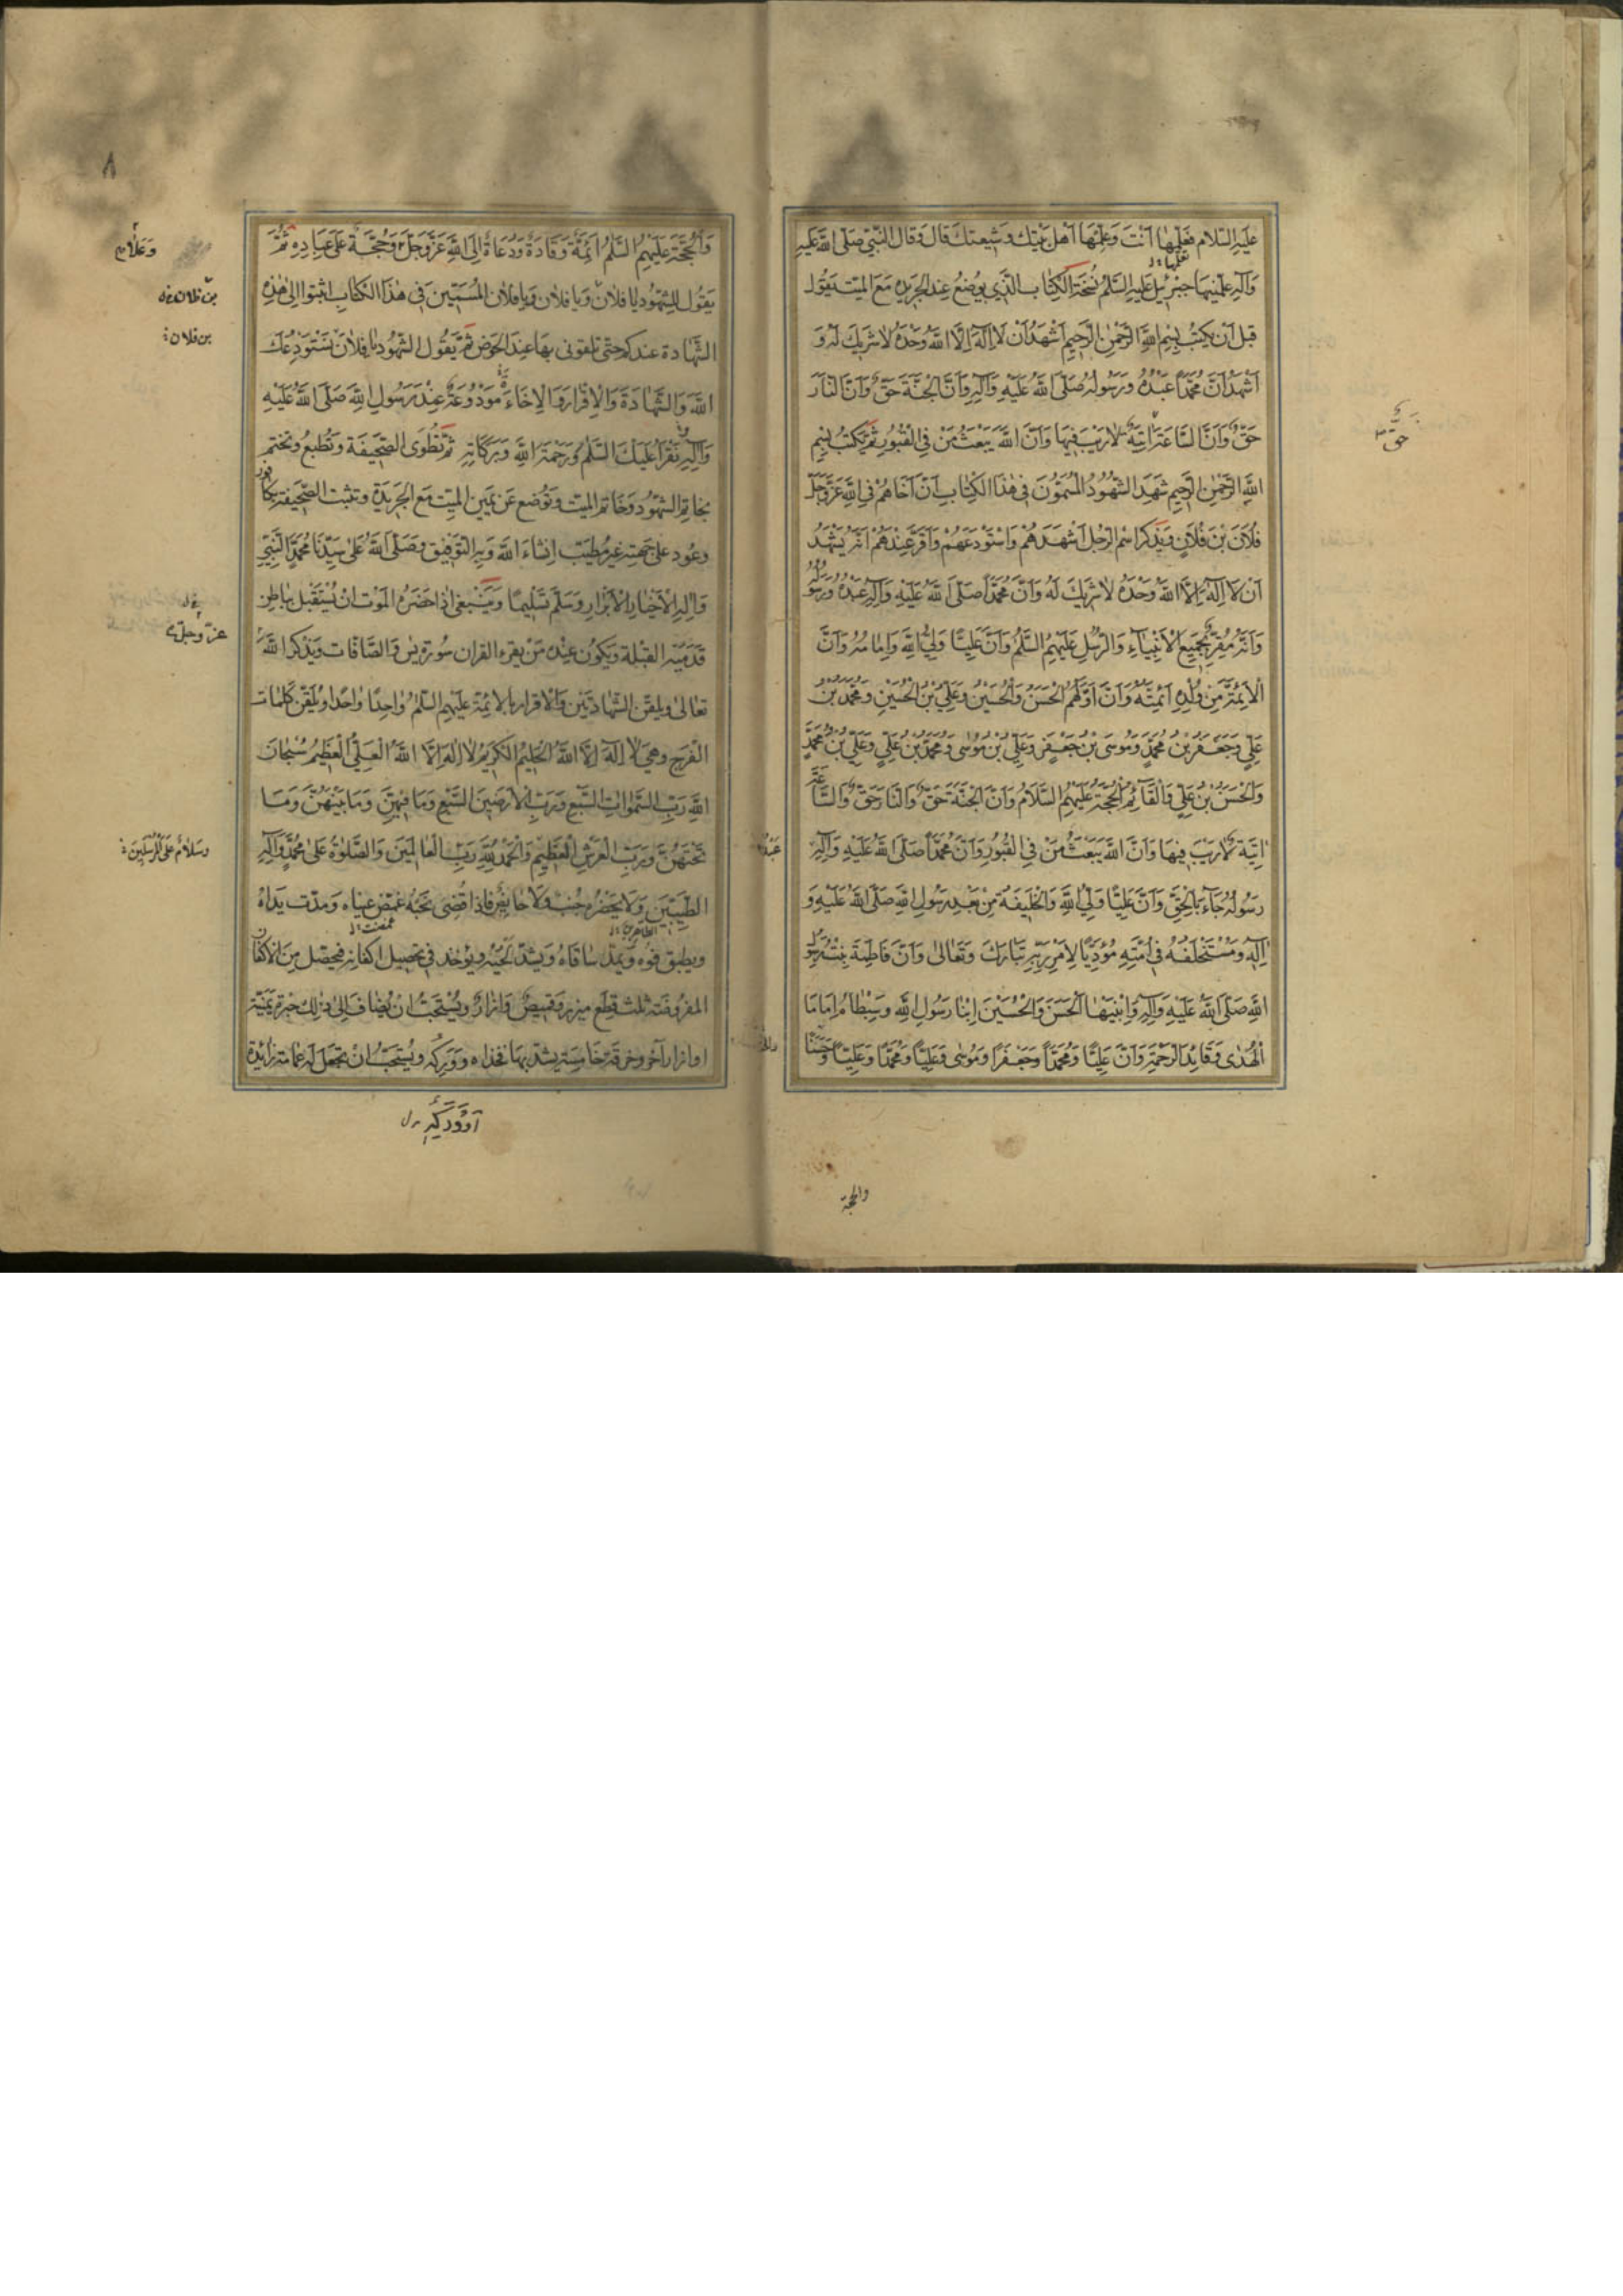 عَلَيْهِ السَّلَامُ فَعَلِّمْهَا أَنْتَ وَعَلِّمْهَا أَهْلَ بَيْتِكَ وَشِيعَتَكَ قَالَ وَقَالَ النَّبِيُّ صَلَّى اللَّهُ عَلَيْهِ
وَآلِهِ عَلَّمَنِيهَا جَبْرَئِيلُ عَلَيْهِ السَّلَمُ نُسْخَةُ الْكِتَابِ الَّذِي يُوضَعُ عِنْدَ الْجَرِيدَةِ مَعَ الْمَيِّتِ يَقُولُ
قَبْلَ أَنْ يَكْتُبَ بِسْمِ اللَّهِ الرَّحْمَنِ الرَّحِيمِ أَشْهَدُ أَنْ لَا إِلَهَ إِلَّا اللَّهُ وَحْدَهُ لَا شَرِيكَ لَهُ وَ
أَشْهَدُ أَنَّ مُحَمَّدًا عَبْدُهُ وَرَسُولُهُ صَلَّى اللَّهُ عَلَيْهِ وَآلِهِ وَأَنَّ الْجَنَّةَ حَقٌّ وَأَنَّ النَّارَ
حَقٌّ وَأَنَّ السَّاعَةَ آتِيَةٌ لَا رَيْبَ فِيهَا وَأَنَّ اللَّهَ يَبْعَثُ مَنْ فِي الْقُبُورِ ثُمَّ يَكْتُبُ بِسْمِ
حَقٌّ
اللَّهِ الرَّحْمَنِ الرَّحِيمِ شَهِدَ الشُّهُودُ الْمُسَمَّوْنَ فِي هَذَا الْكِتَابِ أَنَّ أَخَاهُمْ فِي اللَّهِ عَزَّ وَجَلَّ
فُلَانَ بْنَ فُلَانٍ وَيَذْكُرُ اسْمَ الرَّجُلِ أَشْهَدَهُمْ وَاسْتَوْدَعَهُمْ وَأَقَرَّ عِنْدَهُمْ أَنَّهُ يَشْهَدُ
أَنْ لَا إِلَهَ إِلَّا اللَّهُ وَحْدَهُ لَا شَرِيكَ لَهُ وَأَنَّ مُحَمَّدًا صَلَّى اللَّهُ عَلَيْهِ وَآلِهِ عَبْدُهُ وَرَسُولُهُ
وَأَنَّهُ مُقِرٌّ بِجَمِيعِ الْأَنْبِيَاءِ وَالرُّسُلِ عَلَيْهِمُ السَّلَمُ وَأَنَّ عَلِيًّا وَلِيُّ اللَّهِ وَإِمَامُهُ وَأَنَّ
الْأَئِمَّةَ مِنْ وُلْدِهِ أَئِمَّتُهُ وَأَنَّ أَوَّلَهُمُ الْحَسَنُ وَالْحُسَيْنُ وَعَلِيُّ بْنُ الْحُسَيْنِ وَمُحَمَّدُ بْنُ
عَلِيٍّ وَجَعْفَرُ بْنُ مُحَمَّدٍ وَمُوسَى بْنُ جَعْفَرٍ وَعَلِيُّ بْنُ مُوسَى وَمُحَمَّدُ بْنُ عَلِيٍّ وَعَلِيُّ بْنُ مُحَمَّدٍ
وَالْحَسَنُ بْنُ عَلِيٍّ وَالْقَائِمُ الْحُجَّةُ عَلَيْهِمُ السَّلَامُ وَأَنَّ الْجَنَّةَ حَقٌّ وَالنَّارَ حَقٌّ وَالسَّاعَةَ
آتِيَةٌ لَا رَيْبَ فِيهَا وَأَنَّ اللَّهَ يَبْعَثُ مَنْ فِي الْقُبُورِ وَأَنَّ مُحَمَّدًا صَلَّى اللَّهُ عَلَيْهِ وَآلِهِ
عَبْدُهُ
رَسُولُهُ جَاءَ بِالْحَقِّ وَأَنَّ عَلِيًّا وَلِيُّ اللَّهِ وَالْخَلِيفَةُ مِنْ بَعْدِ رَسُولِ اللَّهِ صَلَّى اللَّهُ عَلَيْهِ وَ
آلِهِ وَمُسْتَخْلَفُهُ فِي أُمَّتِهِ مُؤَدِّيًا لِأَمْرِ رَبِّهِ تَبَارَكَ وَتَعَالَى وَأَنَّ فَاطِمَةَ بِنْتُ رَسُولِ
اللَّهِ صَلَّى اللَّهُ عَلَيْهِ وَآلِهِ وَابْنَيْهَا الْحَسَنَ وَالْحُسَيْنَ ابْنَا رَسُولِ اللَّهِ وَسِبْطَاهُ إِمَامَا
الْهُدَى وَقَائِدَا الرَّحْمَةِ وَأَنَّ عَلِيًّا وَمُحَمَّدًا وَجَعْفَرًا وَمُوسَى وَعَلِيًّا وَمُحَمَّدًا وَعَلِيًّا وَحَسَنًا
والحجة
٨
وَالْحُجَّةَ عَلَيْهِمُ السَّلَمُ أَئِمَّةٌ وَقَادَةٌ وَدُعَاةٌ إِلَى اللَّهِ عَزَّ وَجَلَّ وَحُجَّةٌ عَلَى عِبَادِهِ ثُمَّ
يَقُولُ لِلشُّهُودِ يَا فُلَانُ وَيَا فُلَانُ وَيَا فُلَانُ الْمُسَمَّيْنَ فِي هَذَا الْكِتَابِ أَثْبِتُوا إِلَيَّ هَذِهِ
بن فلان
الشَّهَادَةَ عِنْدَكُمْ حَتَّى تَلْقَوْنِي بِهَا عِنْدَ الْحَوْضِ ثُمَّ يَقُولُ الشُّهُودُ يَا فُلَانُ نَسْتَوْدِعُكَ
بن فلان
اللَّهَ وَالشَّهَادَةَ وَالْإِقْرَارَ وَالْإِخَاءَ مَوْدُوعَةٌ عِنْدَ رَسُولِ اللَّهِ صَلَّى اللَّهُ عَلَيْهِ
وَآلِهِ وَنَقْرَأُ عَلَيْكَ السَّلَمَ وَرَحْمَةَ اللَّهِ وَبَرَكَاتِهِ ثُمَّ تُطْوَى الصَّحِيفَةُ وَتُطْبَعُ وَتُخْتَمُ
بِخَاتَمِ الشُّهُودِ وَخَاتَمِ الْمَيِّتِ وَتُوضَعُ عَنْ يَمِينِ الْمَيِّتِ مَعَ الْجَرِيدَةِ وَتُثْبَتُ الصَّحِيفَةُ بِكَافُورٍ
وَعُودٍ عَلَى جَبْهَتِهِ غَيْرَ مُطَيَّبٍ إِنْشَاءَ اللَّهُ وَبِهِ التَّوْفِيقُ وَصَلَّى اللَّهُ عَلَى سَيِّدِنَا مُحَمَّدٍ النَّبِيِّ
وَآلِهِ الْأَخْيَارِ الْأَبْرَارِ وَسَلَّمَ تَسْلِيمًا وَيَنْبَغِي إِذَا حَضَرَهُ الْمَوْتُ أَنْ يُسْتَقْبَلَ بِبَاطِنِ
قَدَمَيْهِ الْقِبْلَةَ وَيَكُونُ عِنْدَهُ مَنْ يَقْرَءُ الْقُرْآنَ سُورَةَ يس وَالصَّافَّاتِ وَيَذْكُرُ اللَّهَ
عز وجل
تَعَالَى وَيُلَقَّنُ الشَّهَادَتَيْنِ وَالْإِقْرَارَ بِالْأَئِمَّةِ عَلَيْهِمُ السَّلَمُ وَاحِدًا وَاحِدًا وَيُلَقَّنُ كَلِمَاتِ
الْفَرَجِ وَهِيَ لَا إِلَهَ إِلَّا اللَّهُ الْحَلِيمُ الْكَرِيمُ لَا إِلَهَ إِلَّا اللَّهُ الْعَلِيُّ الْعَظِيمُ سُبْحَانَ
اللَّهِ رَبِّ السَّمَوَاتِ السَّبْعِ وَرَبِّ الْأَرَضِينَ السَّبْعِ وَمَا فِيهِنَّ وَمَا بَيْنَهُنَّ وَمَا
تَحْتَهُنَّ وَرَبِّ الْعَرْشِ الْعَظِيمِ وَالْحَمْدُ لِلَّهِ رَبِّ الْعَالَمِينَ وَالصَّلَوةُ عَلَى مُحَمَّدٍ وَآلِهِ
وسلام على المرسلين
الطَّيِّبِينَ وَلَا يَحْضُرُهُ جُنُبٌ وَلَا حَائِضٌ فَإِذَا قَضَى نَحْبَهُ غُمِّضَ عَيْنَاهُ وَمُدَّتْ يَدَاهُ
الطاهرين
وَيُطْبَقُ فُوهُ وَيُمَدُّ سَاقَاهُ وَيُشَدُّ لَحْيَيْهِ وَيُؤْخَذُ فِي تَحْصِيلِ أَكْفَانِهِ فَيُحَصَّلُ مِنَ الْأَكْفَانِ
الْمَفْرُوضَةِ ثَلَثُ قِطَعٍ مِئْزَرٌ وَقَمِيصٌ وَإِزَارٌ وَيُسْتَحَبُّ أَنْ يُضَافَ إِلَى ذَلِكَ حِبَرَةٌ يَمَنِيَّةٌ
أَوْ إِزَارٌ آخَرُ وَخِرْقَةٌ خَامِسَةٌ يُشَدُّ بِهَا فَخِذَاهُ وَوَرِكُهُ وَيُسْتَحَبُّ أَنْ يُجْعَلَ لَهُ عِمَامَةٌ زَائِدَةٌ